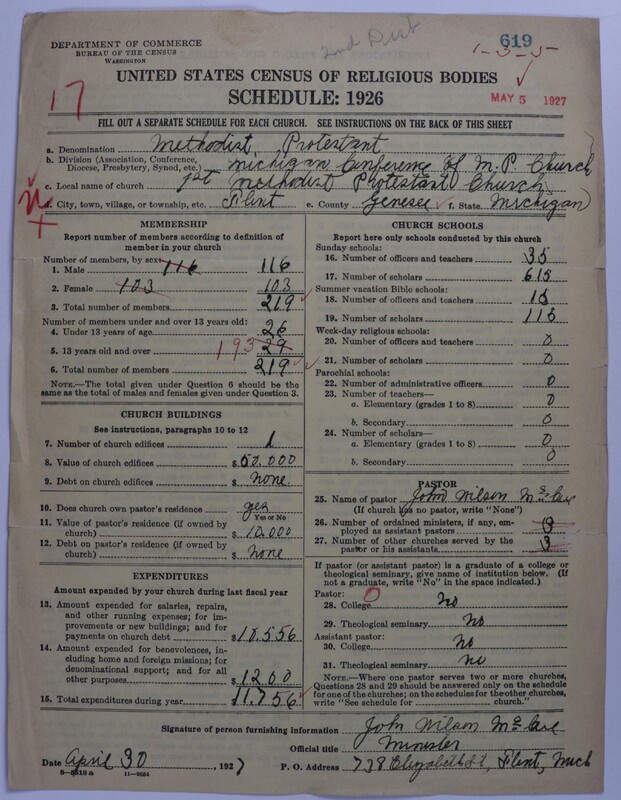 619
2nd Dist
1-3-5
DEPARTMENT OF COMMERCE
BUREAU OF THE CENSUS
WASHINGTON
UNITED STATES CENSUS OF RELIGIOUS BODIES
SCHEDULE: 1926
17
MAY 5 1927
FILL OUT A SEPARATE SCHEDULE FOR EACH CHURCH. SEE INSTRUCTIONS ON THE BACK OF THIS SHEET
a. Denomination Methodist Protestant
b. Division (Association, Conference, Diocese, Presbytery, Synod, etc.) Michigan Conference of M. P. Church
c. Local name of church 1st Methodist Protestant Church
d. City, town, village, or township, etc. Flint e. County Genesee f. State Michigan
MEMBERSHIP
Report number of members according to definition of
member in your church
Number of members, by sex:
1. Male 116 116
2. Female 103 103
3. Total number of members 219
Number of members under and over 13 years old:
4. Under 13 years of age 26
5. 13 years old and over 193 29
6. Total number of members 219
NOTE.—The total given under Question 6 should be the
same as the total of males and females given under Question 3.
CHURCH BUILDINGS
See instructions, paragraphs 10 to 12
7. Number of church edifices 1
8. Value of church edifices $50.000
9. Debt on church edifices $ None
10. Does church own pastor's residence yes
Yes or No
11. Value of pastor's residence (if owned by
church) $10.000
12. Debt on pastor's residence (if owned by
church) $ None
EXPENDITURES
Amount expended by your church during last fiscal year
13. Amount expended for salaries, repairs,
and other running expenses; for im-
provements or new buildings; and for
payments on church debt $10.556
14. Amount expended for benevolences,
including home and foreign missions; for
denominational support; and for all
other purposes $1200
15. Total expenditures during year $11.756
CHURCH SCHOOLS
Report here only schools conducted by this church
Sunday schools:
16. Number of officers and teachers 35
17. Number of scholars 615
Summer vacation Bible schools:
18. Number of officers and teachers 15
19. Number of scholars 115
Week-day religious schools:
20. Number of officers and teachers 0
21. Number of scholars 0
Parochial schools:
22. Number of administrative officers 0
23. Number of teachers—
a. Elementary (grades 1 to 8) 0
b. Secondary 0
24. Number of scholars—
a. Elementary (grades 1 to 8) 0
b. Secondary 0
PASTOR
25. Name of pastor John Wilson
(If church has no pastor, write "None")
26. Number of ordained ministers, if any, em-
ployed as assistant pastors
27. Number of other churches served by the
pastor or his assistants 3
If pastor (or assistant pastor) is a graduate of a college or
theological seminary, give name of institution below. (If
not a graduate, write "No" in the space indicated.)
Pastor: 0
28. College No
29. Theological seminary No
Assistant pastor:
30. College No
31. Theological seminary no
NOTE.—Where one pastor serves two or more churches,
Questions 28 and 29 should be answered only on the schedule
for one of the churches; on the schedules for the other churches,
write "See schedule for church.")
Signature of person furnishing information John Wilson
Official title Minister
Date April 30, 1927 P. O. Address 738 Elizabeth St, Flint, Mich
8-5518a 11-9064